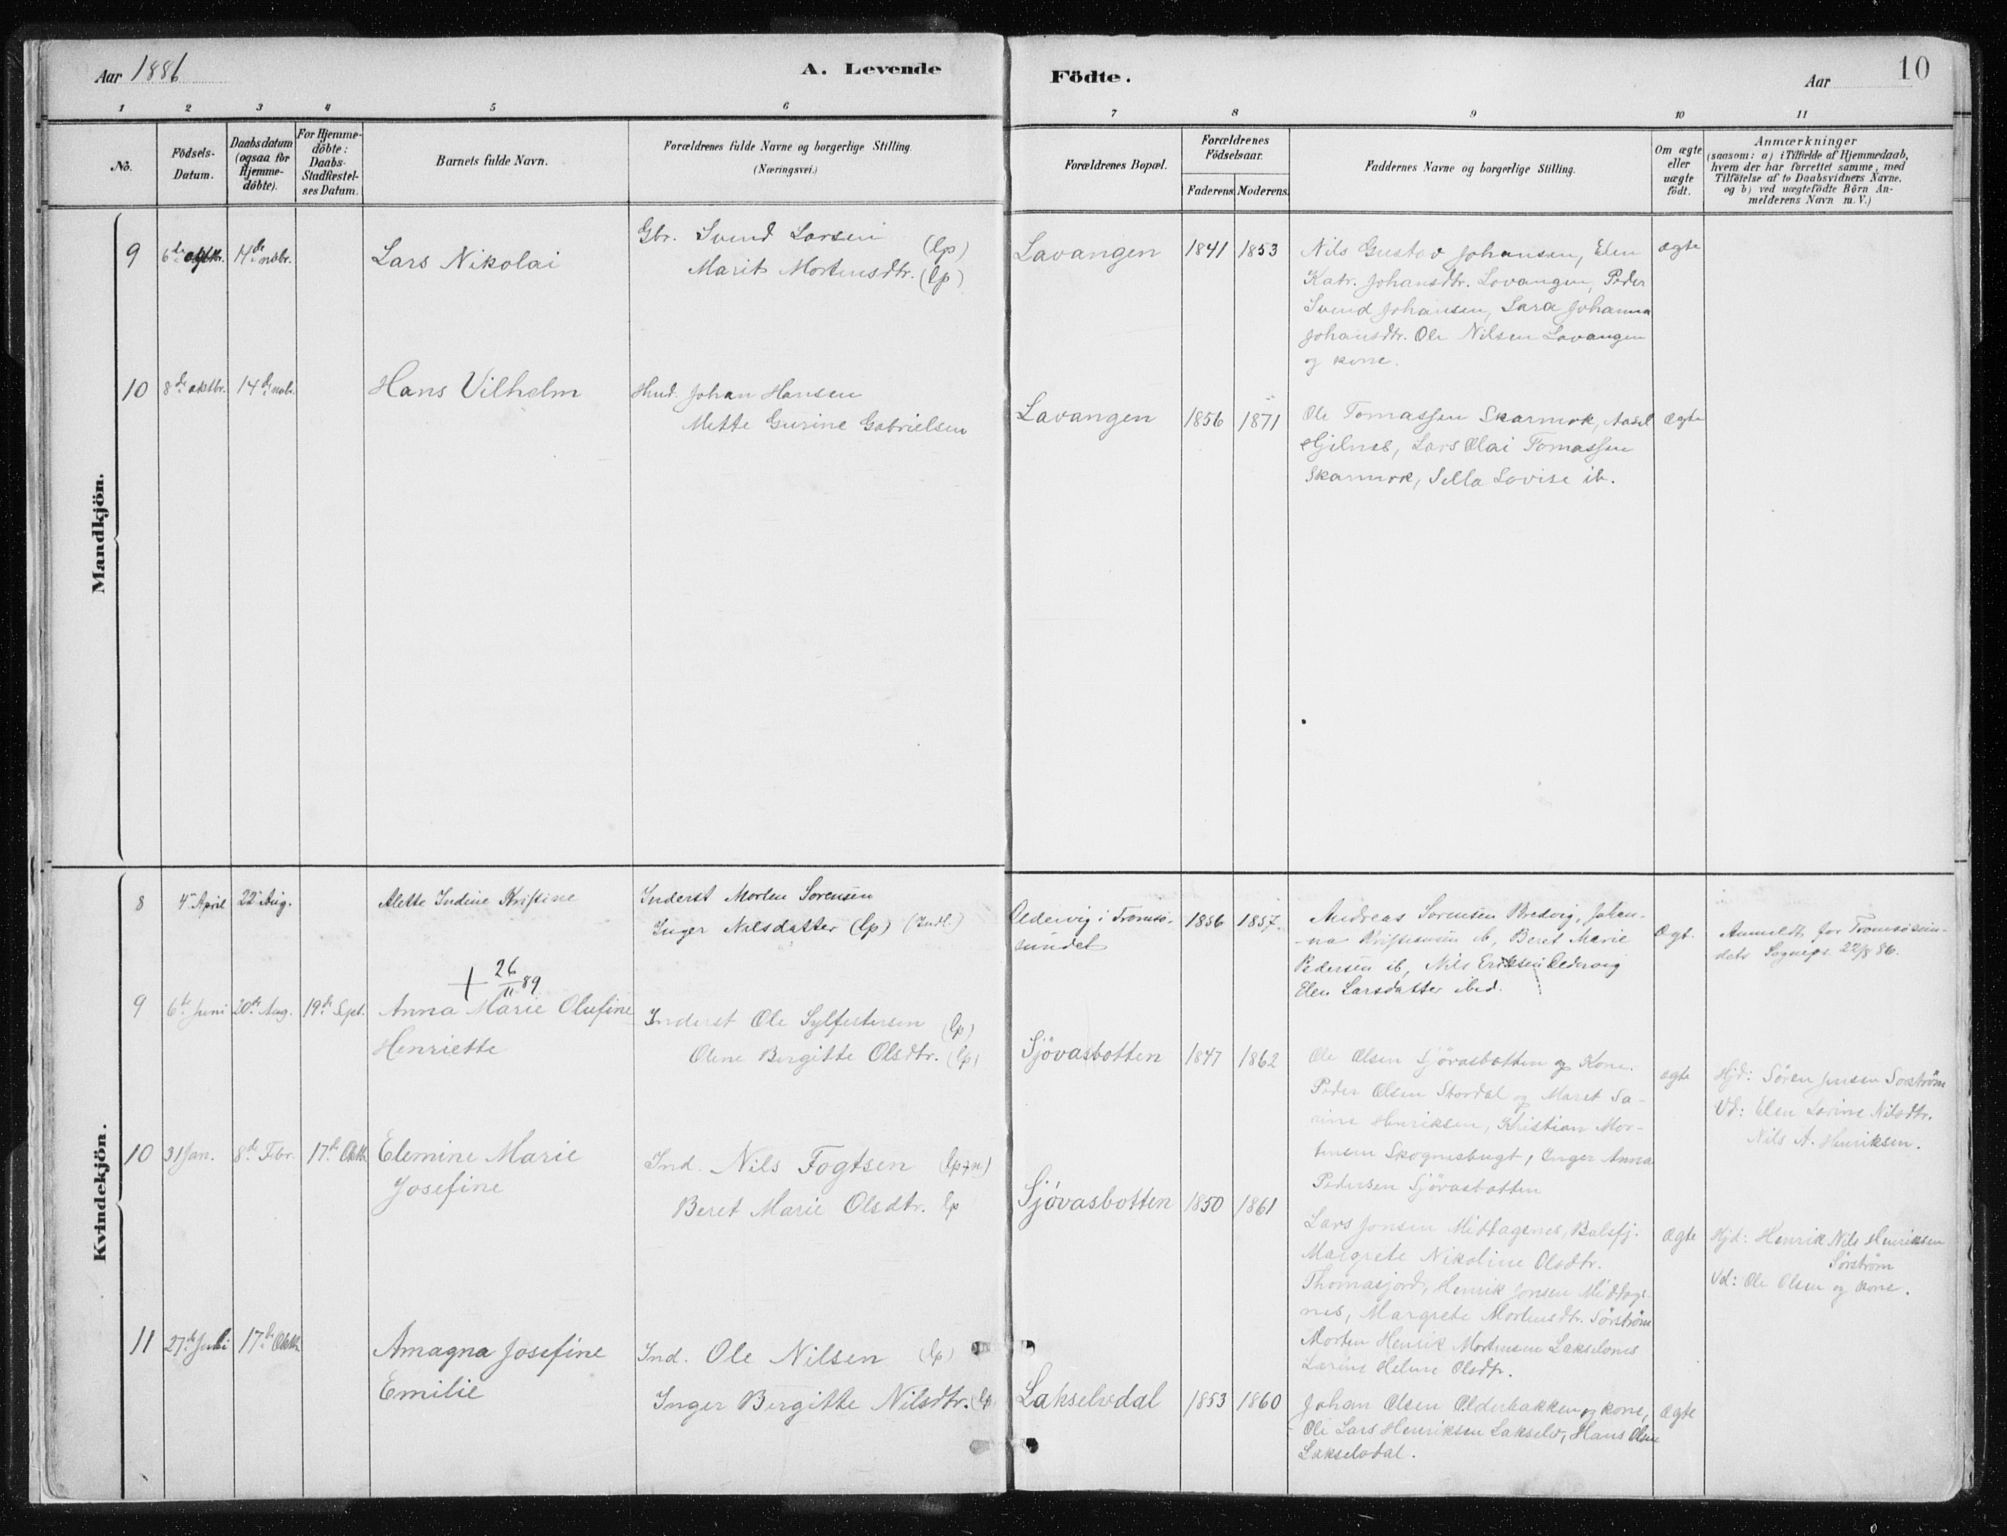 Aar 1886
A. Levende
Födte.
Aar
10
1 2 3 4 5 6 7 8 9 10 11
No.
Födsels-
Datum.
Daabsdatum
(ogsaa for
Hjemme-
döbte).
For Hjemme-
döbte:
Daabs-
Stadfæstel-
ses Datum.
Barnets fulde Navn.
Forældrenes fulde Navne og borgerlige Stilling.
(Næringsvei.)
Forældrenes Bopæl.
Forældrenes
Födselsaar.
Faderens. Moderens.
Faddernes Navne og borgerlige Stilling.
Om ægte
eller
uægte
födt.
Anmærkninger
(saasom: a) i Tilfælde af Hjemmedaab,
hvem der har forrettet samme, med
Tilföielse af to Daabsvidners Navne,
og b) ved uægtefödte Börn An-
melderens Navn m. V.)
Mandkjön.
9
6te oktbr.
14de nvbr.
Lars Nikolai
Gbr. Svend Larsen (lp)
Marit Mortensdtr. (lp)
Lavangen
1841
1853
Nils Gustav Johansen, Elen
Katr. Johansdtr. Lovangen, Peder
Svend Johansen, Sara Johanna
Johansdtr. Ole Nilsen Lavangen
og kone.
ægte
10
8de oktbr.
14de nvbr.
Hans Vilhelm
Hmd. Johan Hansen
Mette Gurine Gabrielsen
Lavangen
1856
1871
Ole Tomassen Skarmok, Aasel
Gjilnes, Lars Olai Tomassen
Skarmok, Silla Lovise ib.
ægte
Kvindekjön.
8
4de April
22de Aug.
Alette Indine Kristine
Inderst Morten Sorensen
Inger Nilsdatter (lp) (Indl.)
Oldervig i Tromsø-
sundet
1856
1857.
Andreas Sorensen Bredvig, Johan-
na Kristiansen ib, Beret Marie
Pedersen ib, Nils Eriksen Oldervig
Elen Larsdatter ibid.
Ægt.
Anmeldt for Tromsøsun-
dets Sognepr. 22/8 86.
9
6te Juni
20de Aug.
19de Sept.
+ 26/11 89
Anna Marie Olufine
Henriette
Inderst Ole Sylfestersen (lp)
Oline Birgitte Olsdtr. (lp)
Sjövasbotten
1847
1862
Ole Olsen Sjövasbotten og Kone.
Peder Olsen Stordal og Maret Sa-
rine Henriksen, Kristian Mor-
tensen Skognesbugt, Inger Anna
Pedersen Sjövasbotten
ægte
Hjd: Sören Jensen Sorström
Vd: Elen Lorine Nilsdtr.
Nils A. Henriksen.
10
31 Jan.
8de Fbr.
17de Oktb.
Elemine Marie
Josefine
Ind. Nils Fogtsen
Beret Marie Olsdtr. lp
Sjövasbotten
1850
1861
Lars Jonsen Midtagsnes, Balsfj.
Margrete Nikoline Olsdtr.
Thomasjord, Henrik Jonsen Midtags-
nes, Margrete Mortensdtr. Sörström
Morten Henrik Mortensen Lakselvnes
Lorine Helene Olsdtr.
ægte
Hjd: Henrik Nils Henriksen
Sörström
Vd: Ole Olsen og Kone.
11
27de Juli
17de Oktb.
Amagna Josefine
Emilie
Ind. Ole Nilsen (lp)
Inger Birgitte Nilsdtr. (lp)
Lakselvdal
1853
1860
Johan Olsen Olderbakken og kone,
Ole Lars Henriksen Lakselv, Hans Olsen
Lakselvdal.
ægte